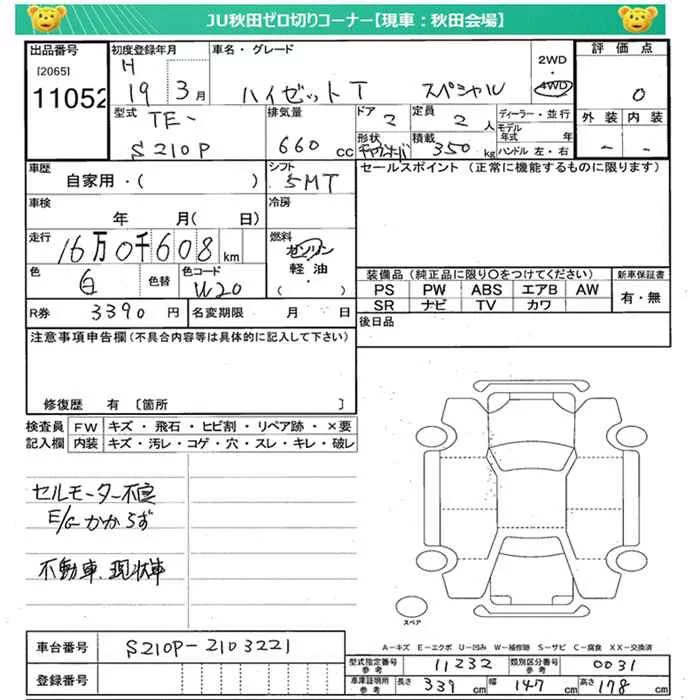 JU秋田ゼロ切りコーナー【現車：秋田会場】
出品番号 初度登録年月 車名・グレード 2WD 評価点
[2065] H 19 3月 ハイゼットT スペシャル 4WD 0
11052
型式 TE- 排気量 ドア 2 定員 2人 ディーラー・並行 外装 内装
S210P 660cc 形状 積載 350kg モデル年式 年 - -
ハンドル 左・右
車歴 シフト セールスポイント（正常に機能するものに限ります）
自家用・( ) 5MT
車検 冷房
年 月( 日)
走行 燃料
16万0千608km ガソリン
軽油
( )
色 白 色替 色コード W20
装備品（純正品に限り○をつけてください） 新車保証書
PS PW ABS エアB AW 有・無
SR ナビ TV カワ
R券 3390円 名変期限 月 日
後日品
注意事項申告欄(不具合内容等は具体的に記入して下さい)
修復歴 有 〔箇所 〕
検査員 FW キズ・飛石・ヒビ割・リペア跡・×要
記入欄 内装 キズ・汚レ・コゲ・穴・スレ・キレ・破レ
セルモーター不良
E/Gかからず
不動車、現状車
スペア
A－キズ E－エクボ U－凹み W－補修跡 S－サビ C－腐食 XX－交換済
車台番号 S210P-2103221
登録番号
型式指定番号 参考 11232 類別区分番号 参考 0031
車庫証明用 参考 長さ 339cm 幅 147cm 高さ 178cm